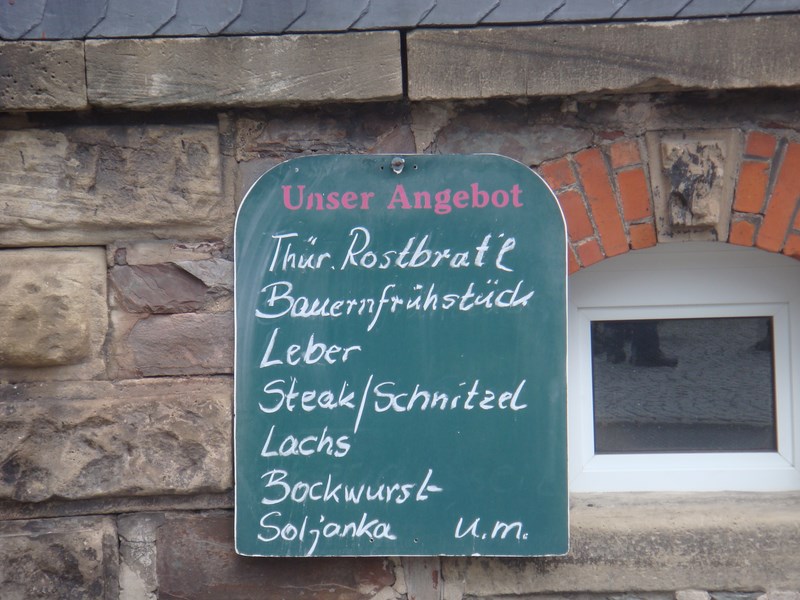 Unser Angebot
Thür. Rostbrat'l
Bauernfrühstück
Leber
Steak/Schnitzel
Lachs
Bockwurst
Soljanka u.m.